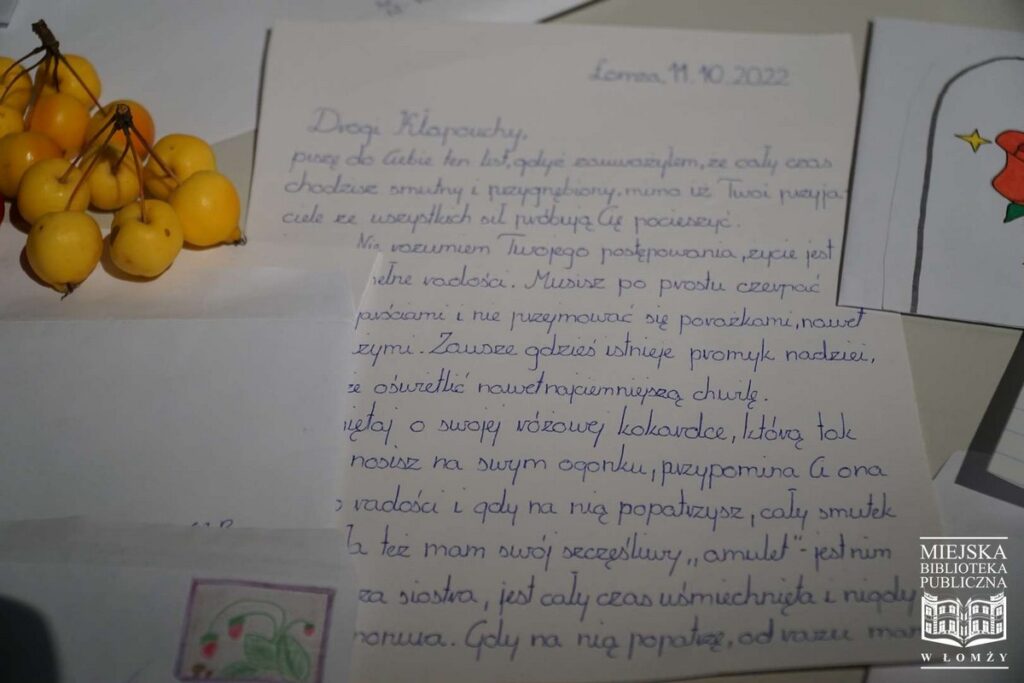 Łomża 11.10.2022
Drogi Kłapouchy,
piszę do Ciebie ten list, gdyż zauważyłem, że cały czas
chodzisz smutny i przygnębiony, mimo iż Twoi przyja
ciele ze wszystkich sił próbują Cię pocieszyć.
Nie rozumiem Twojego postępowania, życie jest
ełne radości. Musisz po prostu czerpać
i nie przejmować się porażkami, nawet
szymi. Zawsze gdzieś istnieje promyk nadziei,
że oświetlić nawet najciemniejszą chwilę.
iętaj o swojej różowej kokardce, którą tak
nosisz na swym ogonku, przypomina Ci ona
o radości i gdy na nią popatrzysz, cały smutek
Ja też mam swój szczęśliwy „amulet" - jest nim
sza siostra, jest cały czas uśmiechnięta i nigdy
Gdy na nią popatrzę, od razu mam
MIEJSKA
BIBLIOTEKA
PUBLICZNA
W ŁOMŻY